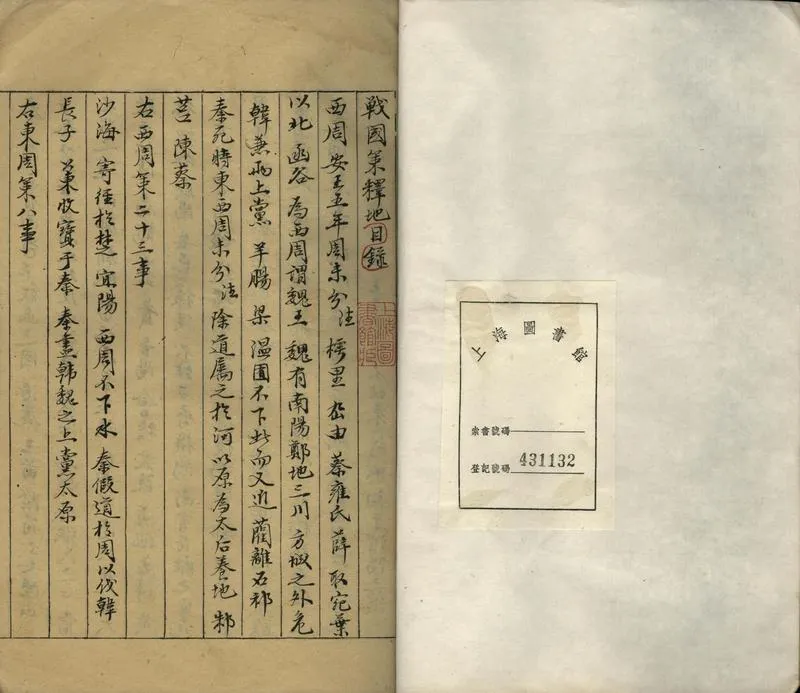 上海圖書館
索書號碼
登記號碼 431132
戰國策釋地目錄
西周 安王五年周未分注 樗里 厹由 蔡雍氏 薛 取宛葉
以北 函谷 為西周謂魏王 魏有南陽鄭地三川 方城之外危
韓兼兩上黨 羊腸 梁 溫囿不下此而又近 藺離石祁
秦死時東西周未分注 除道屬之於河 以原為太后養地 邾
莒 陳蔡
右西周策二十三事
沙海 寄徑於楚 宜陽 西周不下水 秦假道於周以伐韓
長子 蒐收寶于秦 秦盡韓魏之上黨太原
右東周策八事
上海圖書館藏